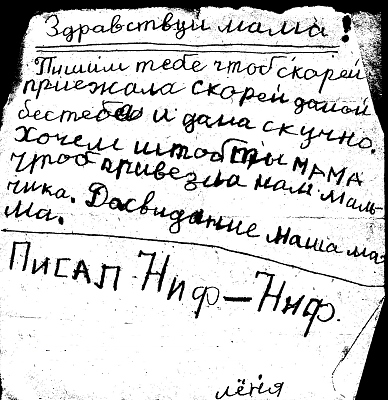 Здравствуй мама!
Пишим тебе чтоб скорей
приежала скорей дамой
бестебя и дама скучно.
Хочем штоб ты мама
чтоб привезла нам маль-
чика. Досвидание наша ма-
ма.
Писал Ниф-Ниф.
лёня